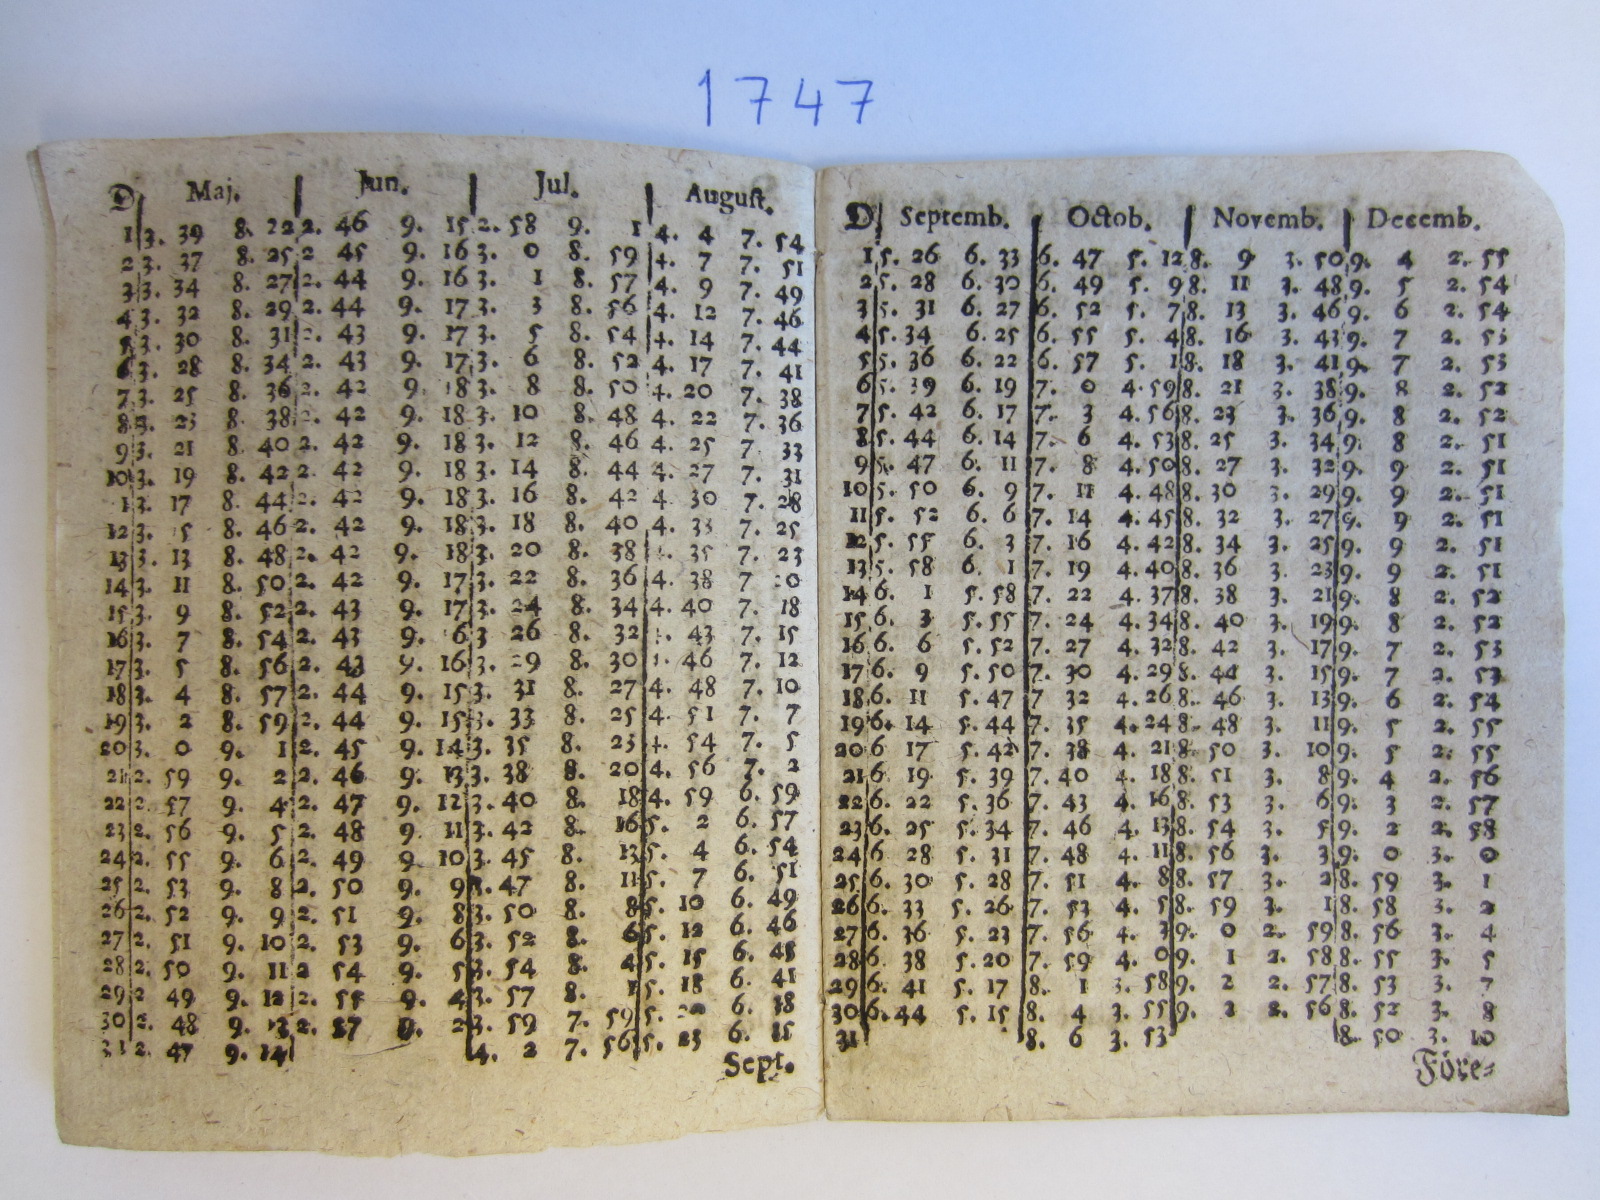 1747
D. Maj. Jun. Jul. August.
1 3. 39 8. 22 2. 46 9. 15 2. 58 9. 1 4. 4 7. 54
2 3. 37 8. 25 2 45 9. 16 3. 0 8. 59 4. 7 7. 51
3 3. 34 8. 27 2. 44 9. 16 3. 1 8. 57 4. 9 7. 49
4 3. 32 8. 29 2. 44 9. 17 3. 3 8. 56 4. 12 7. 46
5 3. 30 8. 31 2. 43 9. 17 3. 5 8. 54 4. 14 7. 44
6 3. 28 8. 34 2. 43 9. 17 3. 6 8. 52 4. 17 7. 41
7 3. 25 8. 36 2. 42 9. 18 3. 8 8. 50 4. 20 7. 38
8 3. 23 8. 38 2. 42 9. 18 3. 10 8. 48 4. 22 7. 36
9 3. 21 8. 40 2. 42 9. 18 3. 12 8. 46 4. 25 7. 33
10 3. 19 8. 42 2. 42 9. 18 3. 14 8. 44 4. 27 7. 31
1 3. 17 8. 44 2. 42 9. 18 3. 16 8. 42 4. 30 7. 28
12 3. 5 8. 46 2. 42 9. 18 3. 18 8. 40 4. 33 7. 25
13 3. 13 8. 48 2. 42 9. 18 3. 20 8. 38 35 7. 23
14 3. 11 8. 50 2. 42 9. 17 3. 22 8. 36 4. 38 7 0
15 3. 9 8. 52 2. 43 9. 17 3. 24 8. 34 4. 40 7. 18
16 3. 7 8. 54 2. 43 9. 6 3 26 8. 32 43 7. 15
17 3. 5 8. 56 2. 43 9. 16 3. 29 8. 30 46 7. 12
18 3. 4 8. 57 2. 44 9. 15 3. 31 8. 27 4. 48 7. 10
19 3. 2 8. 59 2. 44 9. 15 3. 33 8. 25 4. 51 7. 7
20 3. 0 9. 1 2. 45 9. 14 3. 35 8. 23 4. 54 7. 5
21 2. 59 9. 2 2. 46 9. 13 3. 38 8. 20 4. 56 7. 2
22 2. 57 9. 4 2. 47 9. 12 3. 40 8. 18 4. 59 6. 59
23 2. 56 9. 5 2. 48 9. 11 3. 42 8. 16 5. 2 6. 57
24 2. 55 9. 6 2. 49 9. 10 3. 45 8. 13 5. 4 6. 54
25 2. 53 9. 8 2. 50 9. 9 3. 47 8. 11 5. 7 6. 51
26 2. 52 9. 9 2. 51 9. 8 3. 50 8. 8 5. 10 6. 49
27 2. 51 9. 10 2. 53 9. 6 3. 52 8. 6 5. 12 6. 46
28 2. 50 9. 11 2 54 9. 5 3. 54 8. 4 5. 15 6. 43
29 2 49 9. 12 2. 55 9. 4 3. 57 8. 1 5. 18 6. 41
30 2. 48 9. 13 2. 57 9. 2 3. 59 7. 59 5. 20 6. 38
31 2. 47 9. 14 4. 2 7. 56 5. 23 6. 35
Sept.
D. Septemb. Octob. Novemb. Decemb.
1 5. 26 6. 33 6. 47 5. 12 8. 9 3. 50 9. 4 2. 55
2 5. 28 6. 30 6. 49 5. 9 8. 11 3. 48 9. 5 2. 54
3 5. 31 6. 27 6. 52 5. 7 8. 13 3. 46 9. 6 2. 54
4 5. 34 6. 25 6. 55 5. 4 8. 16 3. 43 9. 7 2. 53
5 5. 36 6. 22 6. 57 5. 1 8. 18 3. 41 9. 7 2. 53
6 5. 39 6. 19 7. 0 4. 59 8. 21 3. 38 9. 8 2. 52
7 5. 42 6. 17 7. 3 4. 56 8. 23 3. 36 9. 8 2. 52
8 5. 44 6. 14 7. 6 4. 53 8. 25 3. 34 9. 8 2. 51
9 5. 47 6. 11 7. 8 4. 50 8. 27 3. 32 9. 9 2. 51
10 5. 50 6. 9 7. 11 4. 48 8. 30 3. 29 9. 9 2. 51
11 5. 52 6. 6 7. 14 4. 45 8. 32 3. 27 9. 9 2. 51
12 5. 55 6. 3 7. 16 4. 42 8. 34 3. 25 9. 9 2. 51
13 5. 58 6. 1 7. 19 4. 40 8. 36 3. 23 9. 9 2. 51
14 6. 1 5. 58 7. 22 4. 37 8. 38 3. 21 9. 8 2. 52
15 6. 3 5. 55 7. 24 4. 34 8. 40 3. 19 9. 8 2. 52
16 6. 6 5. 52 7. 27 4. 32 8. 42 3. 17 9. 7 2. 53
17 6. 9 5. 50 7. 30 4. 29 8. 44 3. 15 9. 7 2. 53
18 6. 11 5. 47 7 32 4. 26 8. 46 3. 13 9. 6 2. 54
19 6. 14 5. 44 7. 35 4. 24 8. 48 3. 11 9. 5 2. 55
20 6 17 5. 42 7. 38 4. 21 8. 50 3. 10 9. 5 2. 55
21 6 19 5. 39 7. 40 4. 18 8. 51 3. 8 9. 4 2. 56
22 6. 22 5. 36 7. 43 4. 16 8. 53 3. 6 9. 3 2. 57
23 6. 25 5. 34 7. 46 4. 13 8. 54 3. 5 9. 2 2. 58
24 6 28 5. 31 7. 48 4. 11 8. 56 3. 3 9. 0 3. 0
25 6. 30 5. 28 7. 51 4. 8 8. 57 3. 2 8. 59 3. 1
26 6. 33 5. 26 7. 53 4. 5 8. 59 3. 1 8. 58 3. 2
27 6. 36 5. 23 7. 56 4. 3 9. 0 2. 59 8. 56 3. 4
28 6. 38 5. 20 7. 59 4. 0 9. 1 2. 58 8. 55 3. 5
29 6. 41 5. 17 8. 1 3. 58 9. 2 2. 57 8. 53 3. 7
30 6. 44 5. 15 8. 4 3. 55 9. 3 2. 56 8. 52 3. 8
31 8. 6 3. 53 8. 50 3. 10
Före-